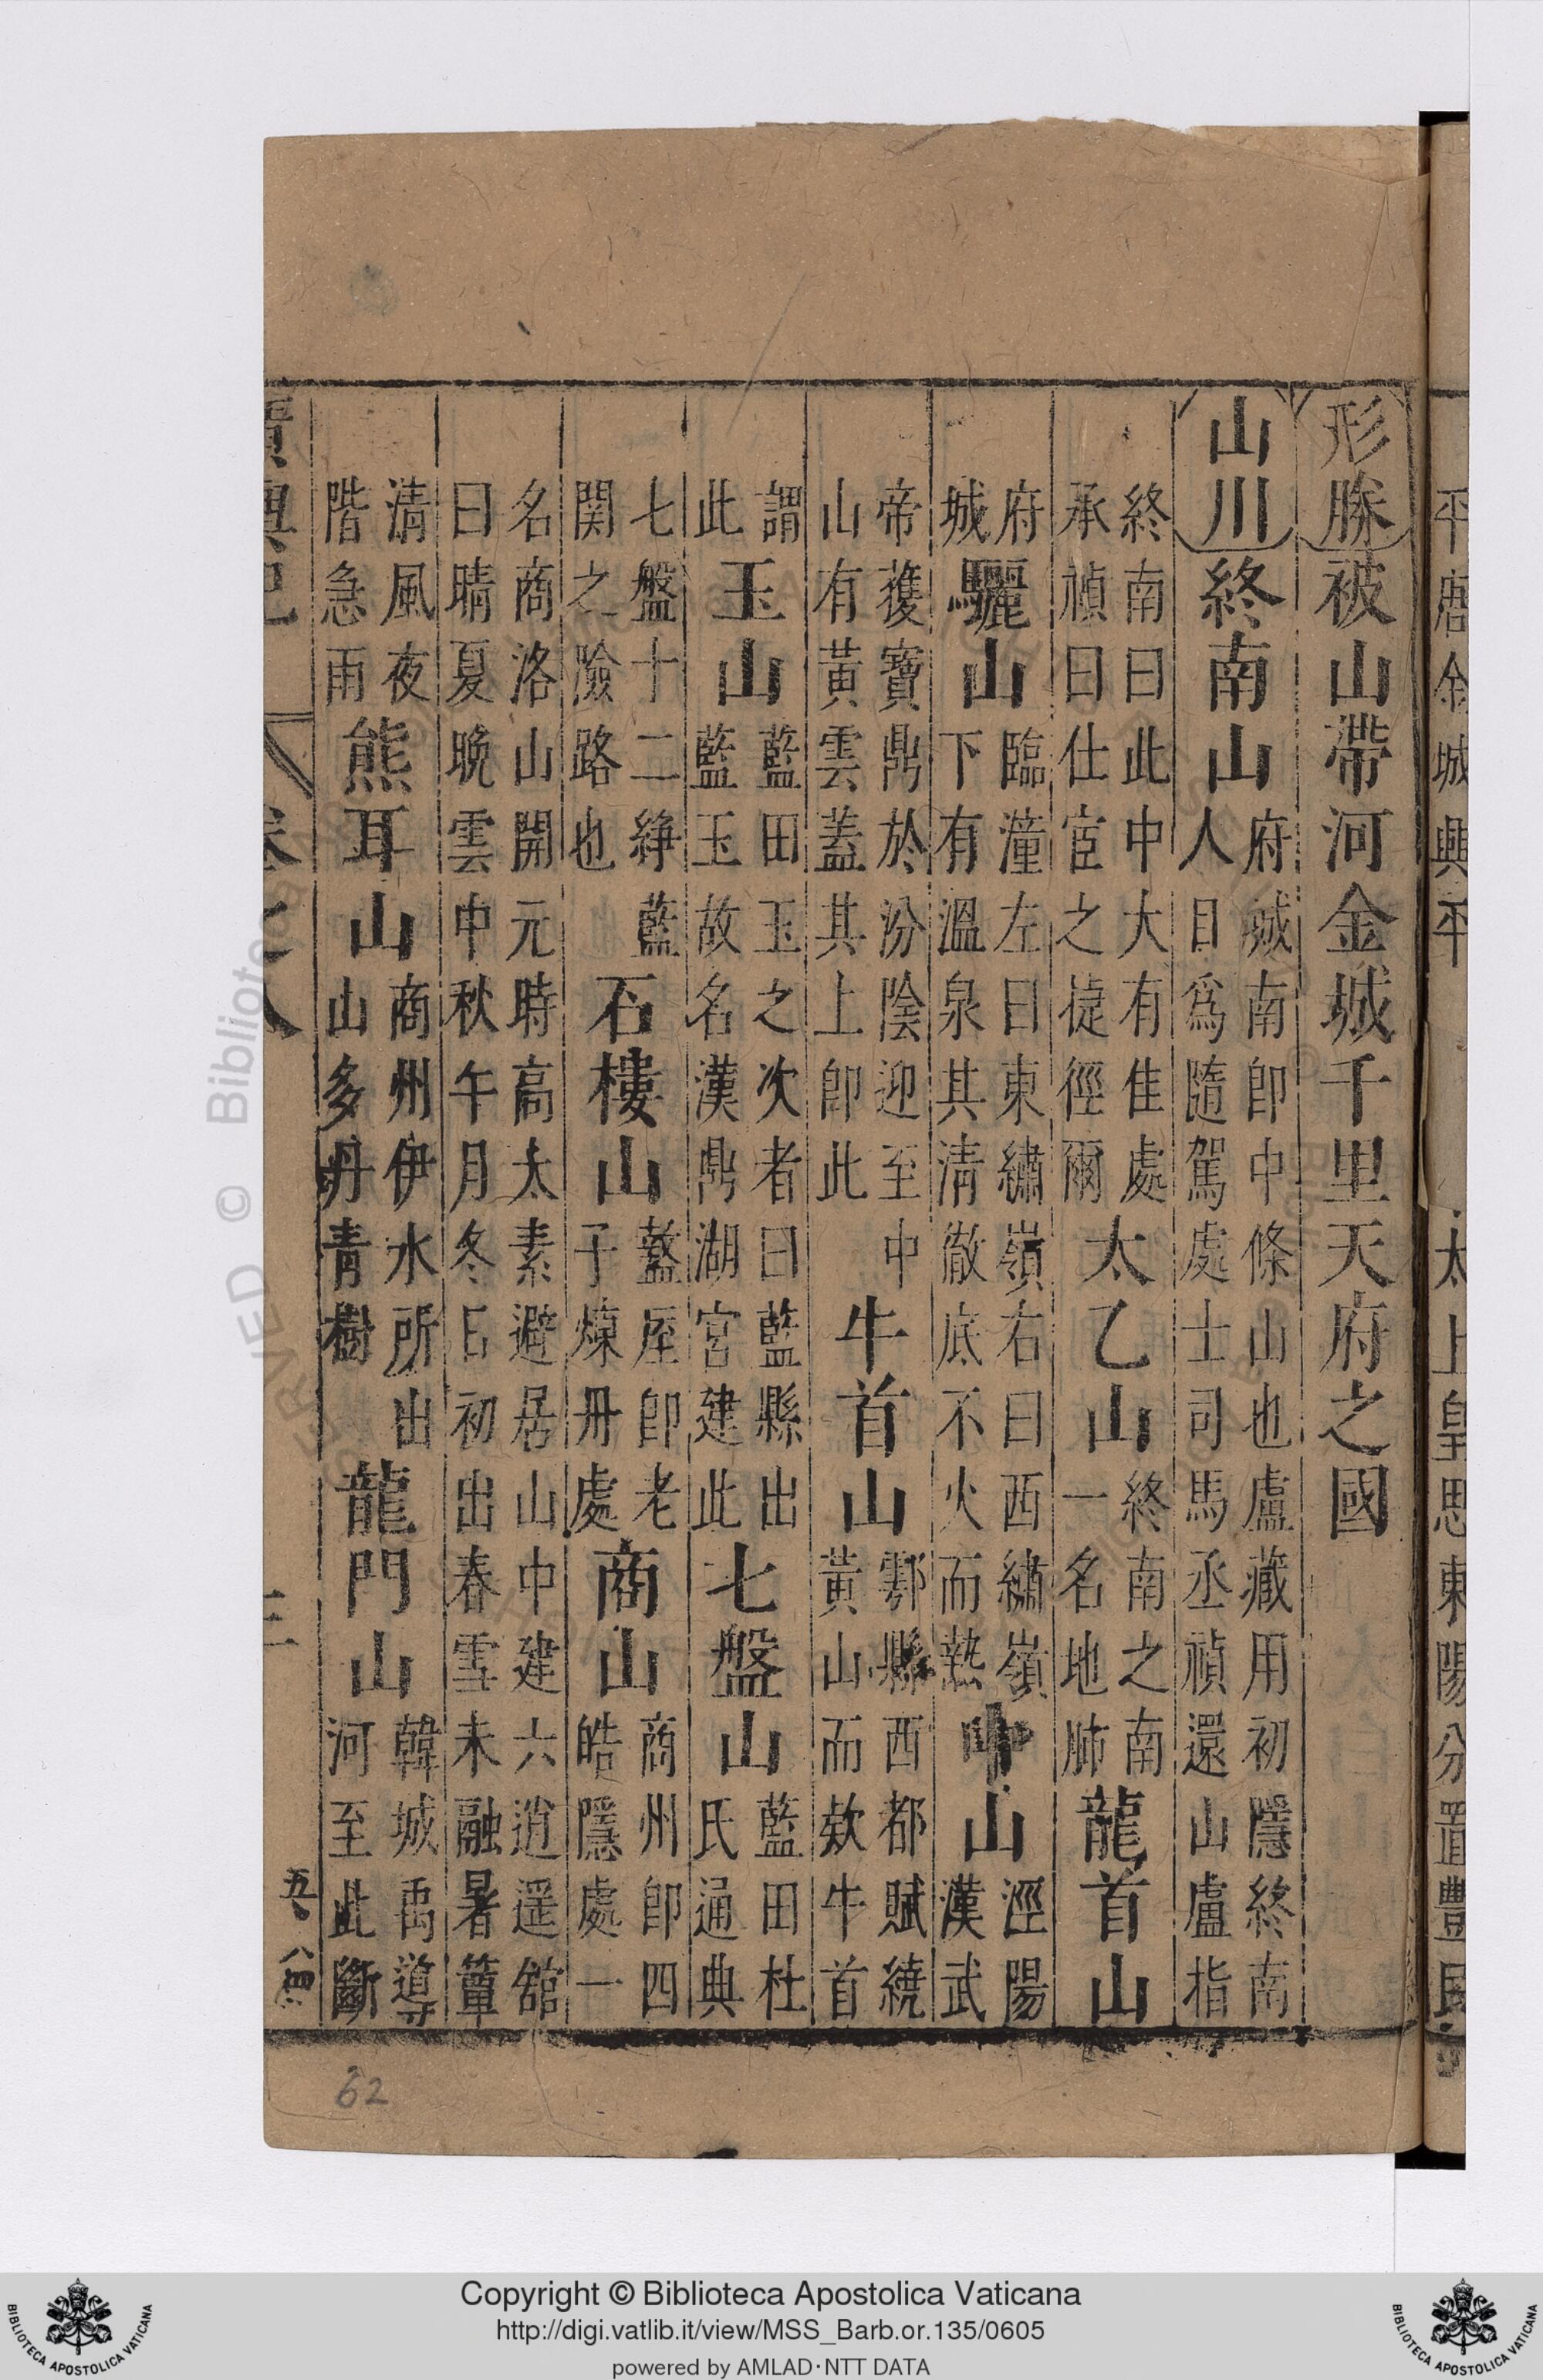 平唐金城興平 太上皇思東陽分置豐民
形勝 被山帶河金城千里天府之國
山川 終南山 府城南即中條山也盧藏用初隱終南
人目爲隨駕處士司馬丞禎還山盧指
終南曰此中大有隹處
承禎曰仕宦之捷徑爾
太乙山
終南之南
一名地肺
龍首山
府
城
驪山
臨潼左曰東繡嶺右曰西繡嶺
下有溫泉其清徹底不火而熱
中山
涇陽
漢武
帝獲寶鼎於汾陰迎至中
山有黃雲蓋其上卽此
牛首山
鄠縣西都賦繞
黃山而欵牛首
謂
此
玉山
藍田玉之次者曰藍縣出
藍玉故名漢鼎湖宮建此
七盤山
藍田杜
氏通典
七盤十二 藍
関之險路也
石樓山
盩厔卽老
子煉丹處
商山
商州卽四
皓隱處一
名商洛山開元時高太素避居山中建六逍遥舘
曰晴夏晚雲中秋午月冬日初出春雪未融暑簟
清風夜
階急雨
熊耳山
商州伊水所出
山多丹青樹
龍門山
韓城禹導
河至此斷
廣輿記 卷之八 三
五、八四
62
Copyright © Biblioteca Apostolica Vaticana
http://digi.vatlib.it/view/MSS_Barb.or.135/0605
powered by AMLAD·NTT DATA